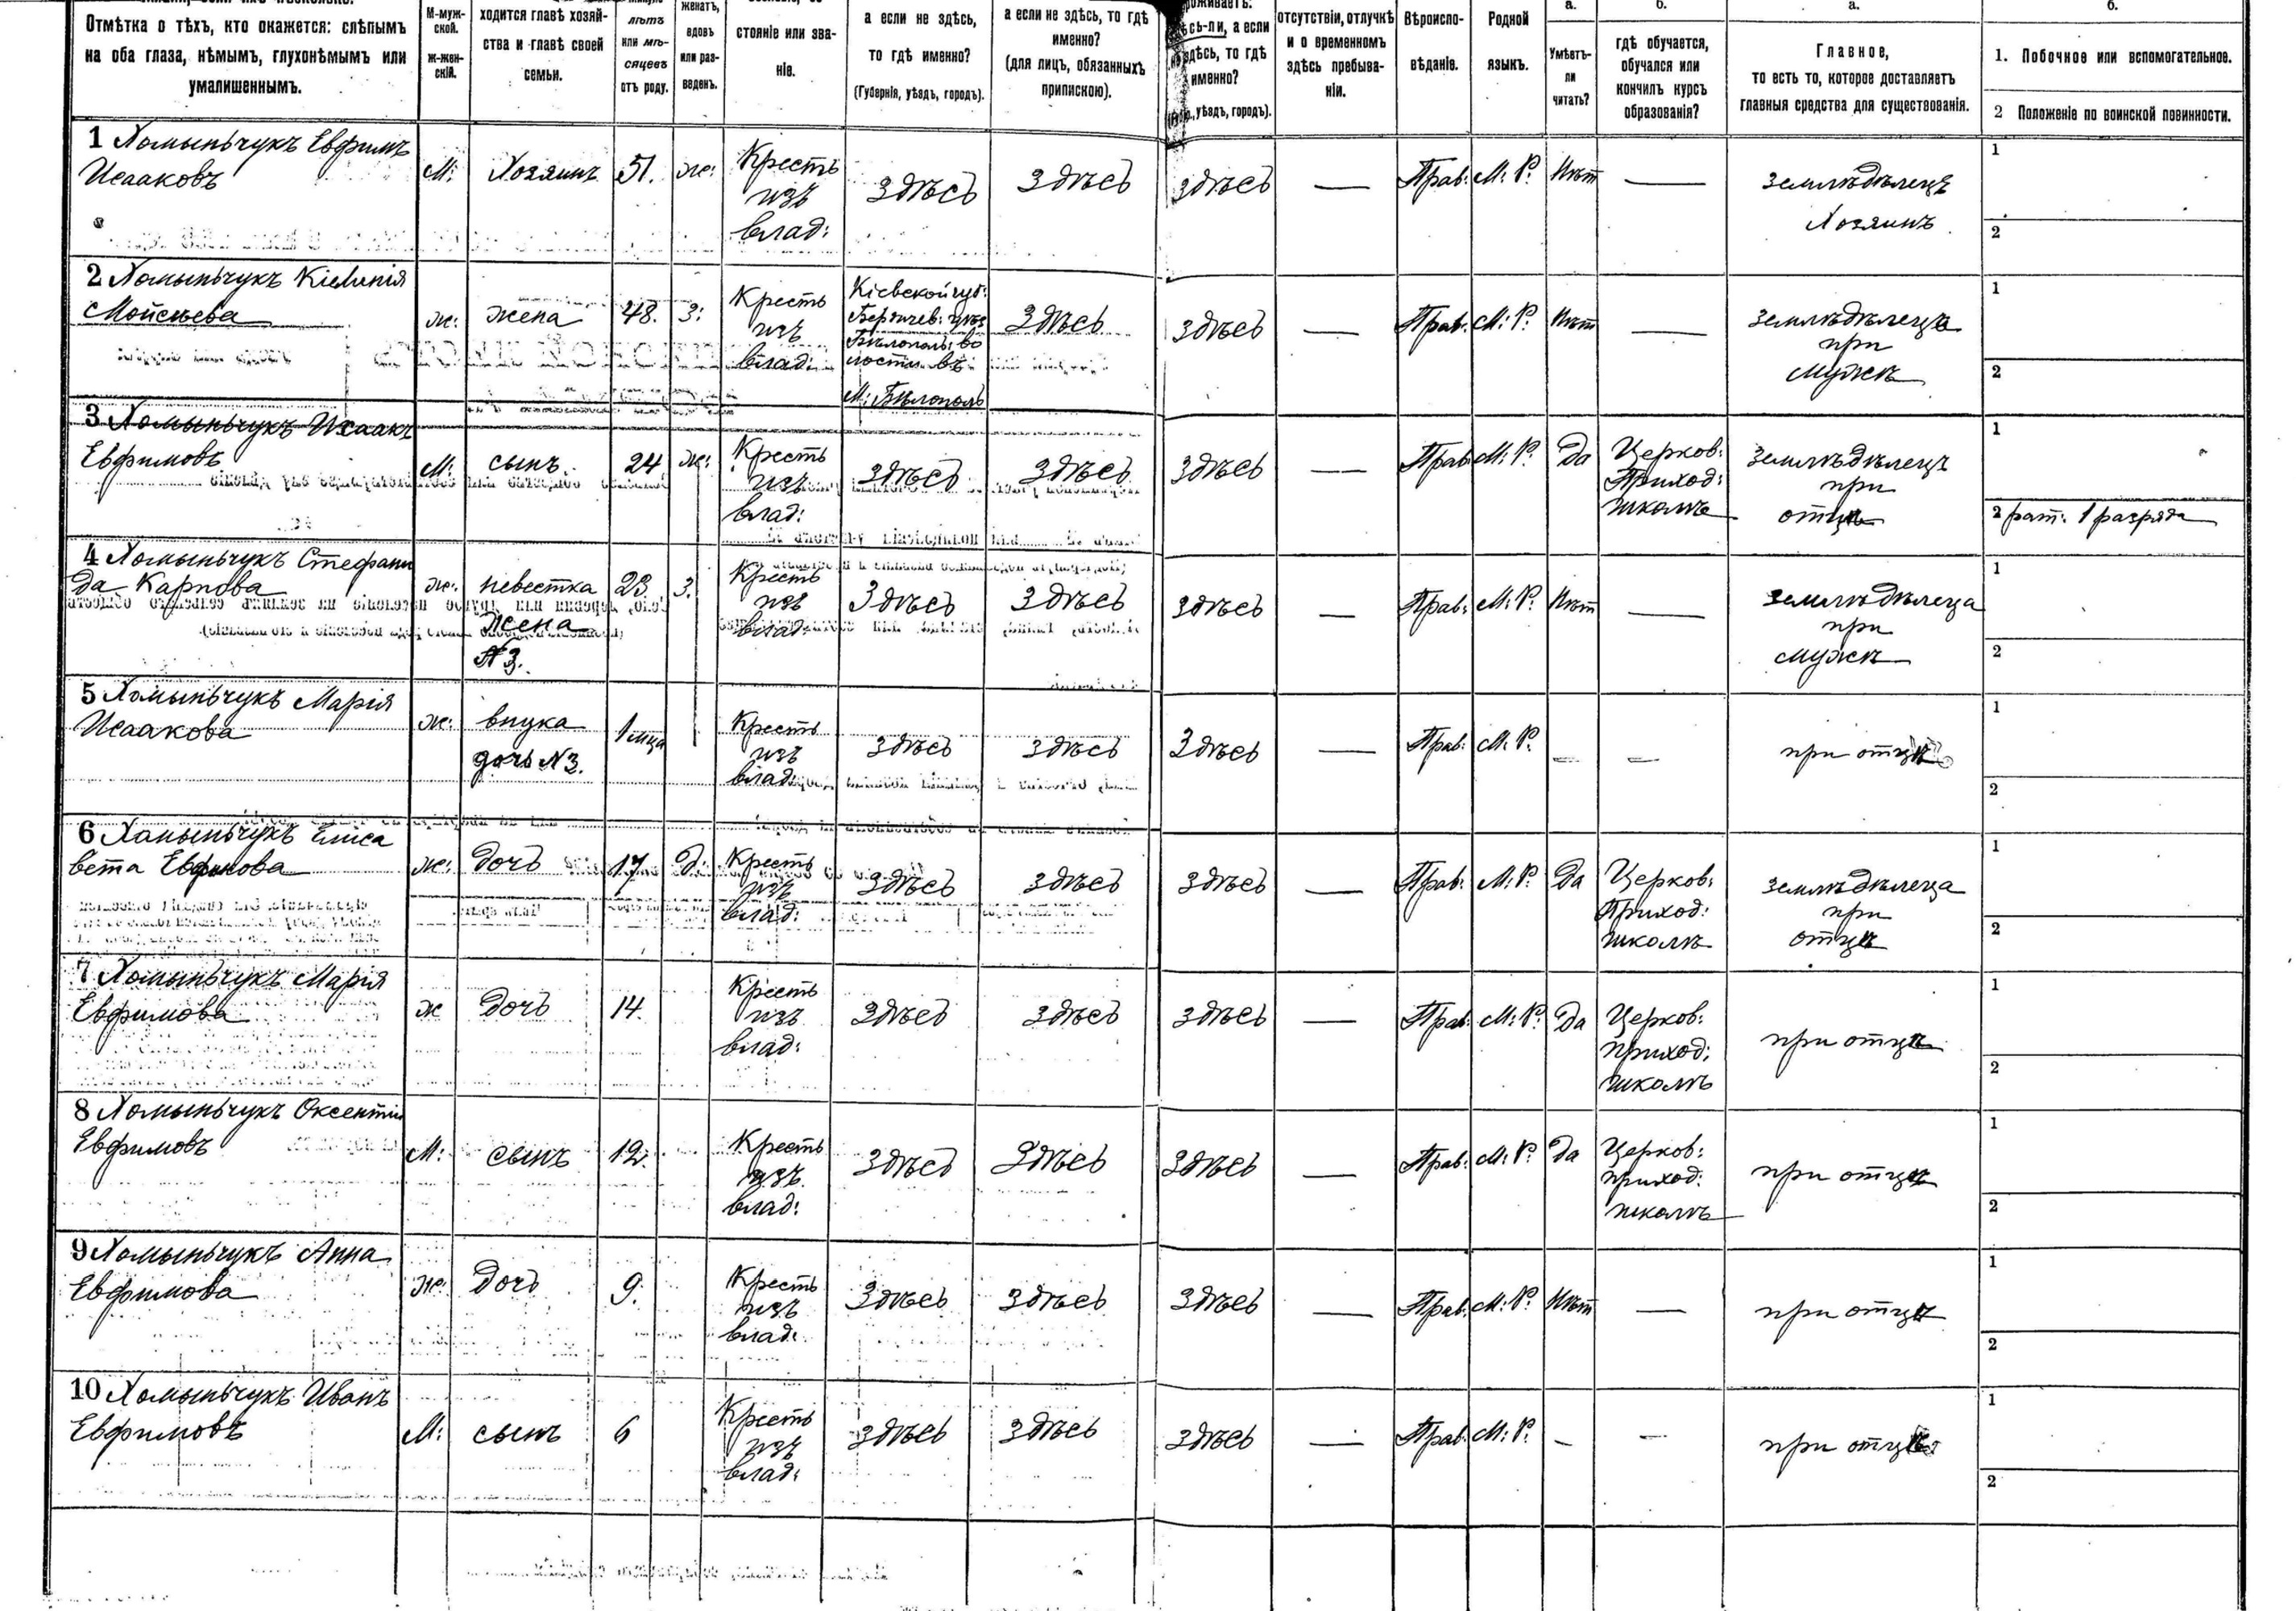 Отмѣтка о тѣхъ, кто окажется: слѣпымъ
на оба глаза, нѣмымъ, глухонѣмымъ или
умалишеннымъ.
М-муж-
ской.
ж-жен-
скій.
ходится главѣ хозяй-
ства и главѣ своей
семьи.
лѣтъ
или мѣ-
сяцевъ
отъ роду.
женатъ,
вдовъ
или раз-
веденъ.
стояніе или зва-
ніе.
а если не здѣсь,
то гдѣ именно?
(Губернія, уѣздъ, городъ).
а если не здѣсь, то гдѣ
именно?
(для лицъ, обязанныхъ
припискою).
здѣсь, то гдѣ
именно?
уѣздъ, городъ).
отсутствіи, отлучкѣ
и о временномъ
здѣсь пребыва-
ніи.
Вѣроиспо-
вѣданіе.
Родной
языкъ.
а.
Умѣетъ-
ли
читать?
б.
гдѣ обучается,
обучался или
кончилъ курсъ
образованія?
а.
Главное,
то есть то, которое доставляетъ
главныя средства для существованія.
б.
1. Побочное или вспомогательное.
2 Положеніе по воинской повинности.
1 Хомыньчукъ Евфимъ
Исааковъ
М:
Хозяинъ
51.
же:
Кресть
изъ
влад:
Здѣсь
Здѣсь
Здѣсь
—
Прав:
М: Р:
Нѣт
—
Землѣдѣлецъ
Хозяинъ
1
2
2 Хомыньчукъ
Мойсѣева
ж:
жена
48.
З:
Кресть
изъ
влад:
Кіевской губ:
Бердичев: уѣз
Бѣлополь: во
лости въ
М: Бѣлополь
Здѣсь
Здѣсь
—
Прав:
М: Р:
Нѣт
—
Землѣдѣлеца
при
мужѣ
1
2
3 Хомыньчукъ Исаакъ
Евфимовъ
М:
сынъ
24
же:
Кресть
изъ
влад:
Здѣсь
Здѣсь
Здѣсь
—
Прав:
М: Р:
Да
Церков:
Приход:
школѣ
Землѣдѣлецъ
при
отцѣ
1
2 рат: 1 разряда
4 Хомыньчукъ Стефани
да Карпова
ж:
невестка
жена
№ 3.
23.
З.
Кресть
изъ
влад:
Здѣсь
Здѣсь
Здѣсь
—
Прав:
М: Р:
Нѣт
—
Землѣдѣлеца
при
мужѣ
1
2
5 Хомыньчукъ Марія
Исаакова
ж:
внука
дочь № 3.
1 мца
Кресть
изъ
влад:
Здѣсь
Здѣсь
Здѣсь
—
Прав:
М: Р:
—
—
при отцѣ
1
2
6 Хомыньчукъ Елиса
вета Евфимова
ж:
дочь
17
д:
Кресть
изъ
влад:
Здѣсь
Здѣсь
Здѣсь
—
Прав:
М: Р:
Да
Церков:
Приход:
школѣ
Землѣдѣлеца
при
отцѣ
1
2
7 Хомыньчукъ Марія
Евфимова
ж
дочь
14.
Кресть
изъ
влад:
Здѣсь
Здѣсь
Здѣсь
—
Прав:
М: Р:
Да
Церков:
приход:
школѣ
при отцѣ
1
2
8 Хомыньчукъ Оксентій
Евфимовъ
М:
сынъ
12.
Кресть
изъ
влад:
Здѣсь
Здѣсь
Здѣсь
—
Прав:
М: Р:
Да
Церков:
приход:
школѣ
при отцѣ
1
2
9 Хомыньчукъ Анна
Евфимова
ж:
дочь
9.
Кресть
изъ
влад:
Здѣсь
Здѣсь
Здѣсь
—
Прав:
М: Р:
Нѣт
—
при отцѣ
1
2
10 Хомыньчукъ Иванъ
Евфимовъ
М:
сынъ
6
Кресть
изъ
влад:
Здѣсь
Здѣсь
Здѣсь
—
Прав:
М: Р:
—
—
при отцѣ
1
2